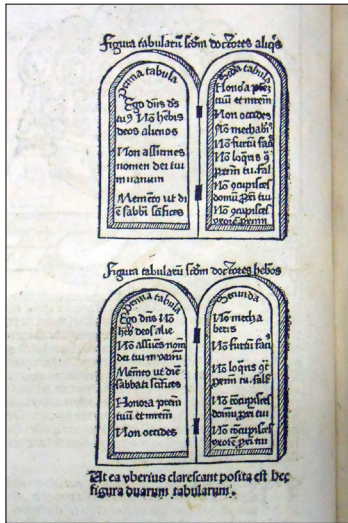 Figura tabularũ scd̃m doctores aliq̃s
Prima tabula
Ego dñs dẽs
tuꝰ Nõ hẽbis
deos alienos
Non assumes
nomen dei tui
in uanum
Memẽto ut di
ẽ sabbi sc̃ifices
Scd̃a tabula
Honora prẽz
tuũ et mrẽm
Non occides
Nõ mechaberꝭ
Nõ furtũ facꝭ
Nõ loq̃ris ꝯ̃
prim̃ tu. fal
Nõ ꝯcupisces
domũ prĩ tui
Nõ ꝯcupisces
uxorẽ
Figura tabularũ scd̃m doctores hebreos
Prima tabula
Ego dñs Nõ
deos alie
Nõ assũes nom̃
dei tui in vanũ
Memẽto ut diẽ
sabbati sc̃ifices
Honora prẽm
tuũ et mrẽm
Non occides
Secunda
Nõ mecha
beris
Nõ furtũ faciꝭ
Nõ loq̃ris
prim̃ tu. fals̃
Nõ cõcupisces
domũ prĩ tui
Nõ cõcupisces
uxorẽ prĩ tui
Ut ea vberius clarescant posita est hec
figura duarum tabularum.